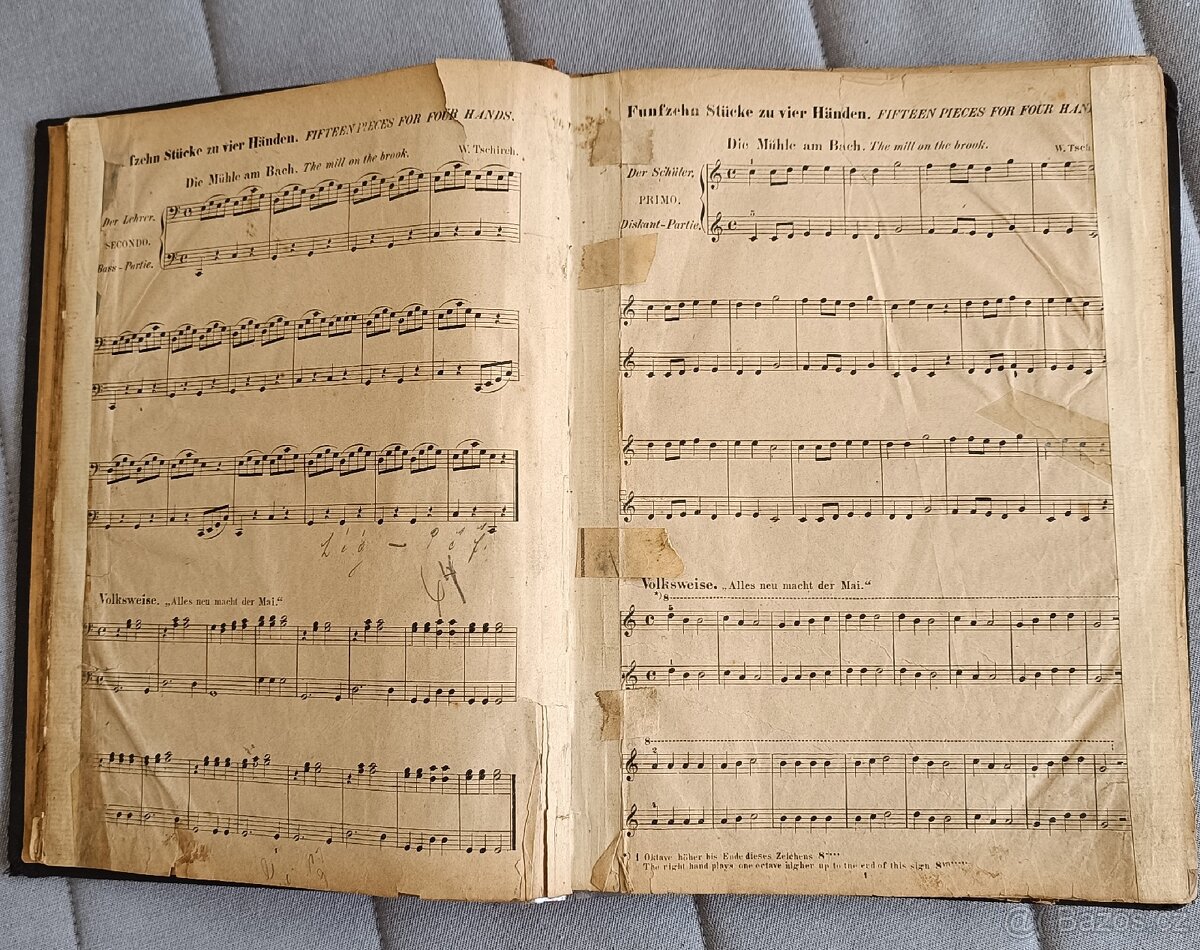 fzehn Stücke zu vier Händen. FIFTEEN PIECES FOR FOUR HANDS.
Die Mühle am Bach. The mill on the brook.
W. Tschirch.
Der Lehrer.
SECONDO.
Bass-Partie.
64
Volksweise. „Alles neu macht der Mai.“
1
Funfzehn Stücke zu vier Händen. FIFTEEN PIECES FOR FOUR HAN
Die Mühle am Bach. The mill on the brook.
W. Tsch
Der Schüler.
PRIMO.
Diskant-Partie.
Volksweise. „Alles neu macht der Mai.“
*) 8
8
*) 1 Oktave höher bis Ende dieses Zeichens 8
The right hand plays one octave higher up to the end of this sign 8
1
@ Bazos.cz